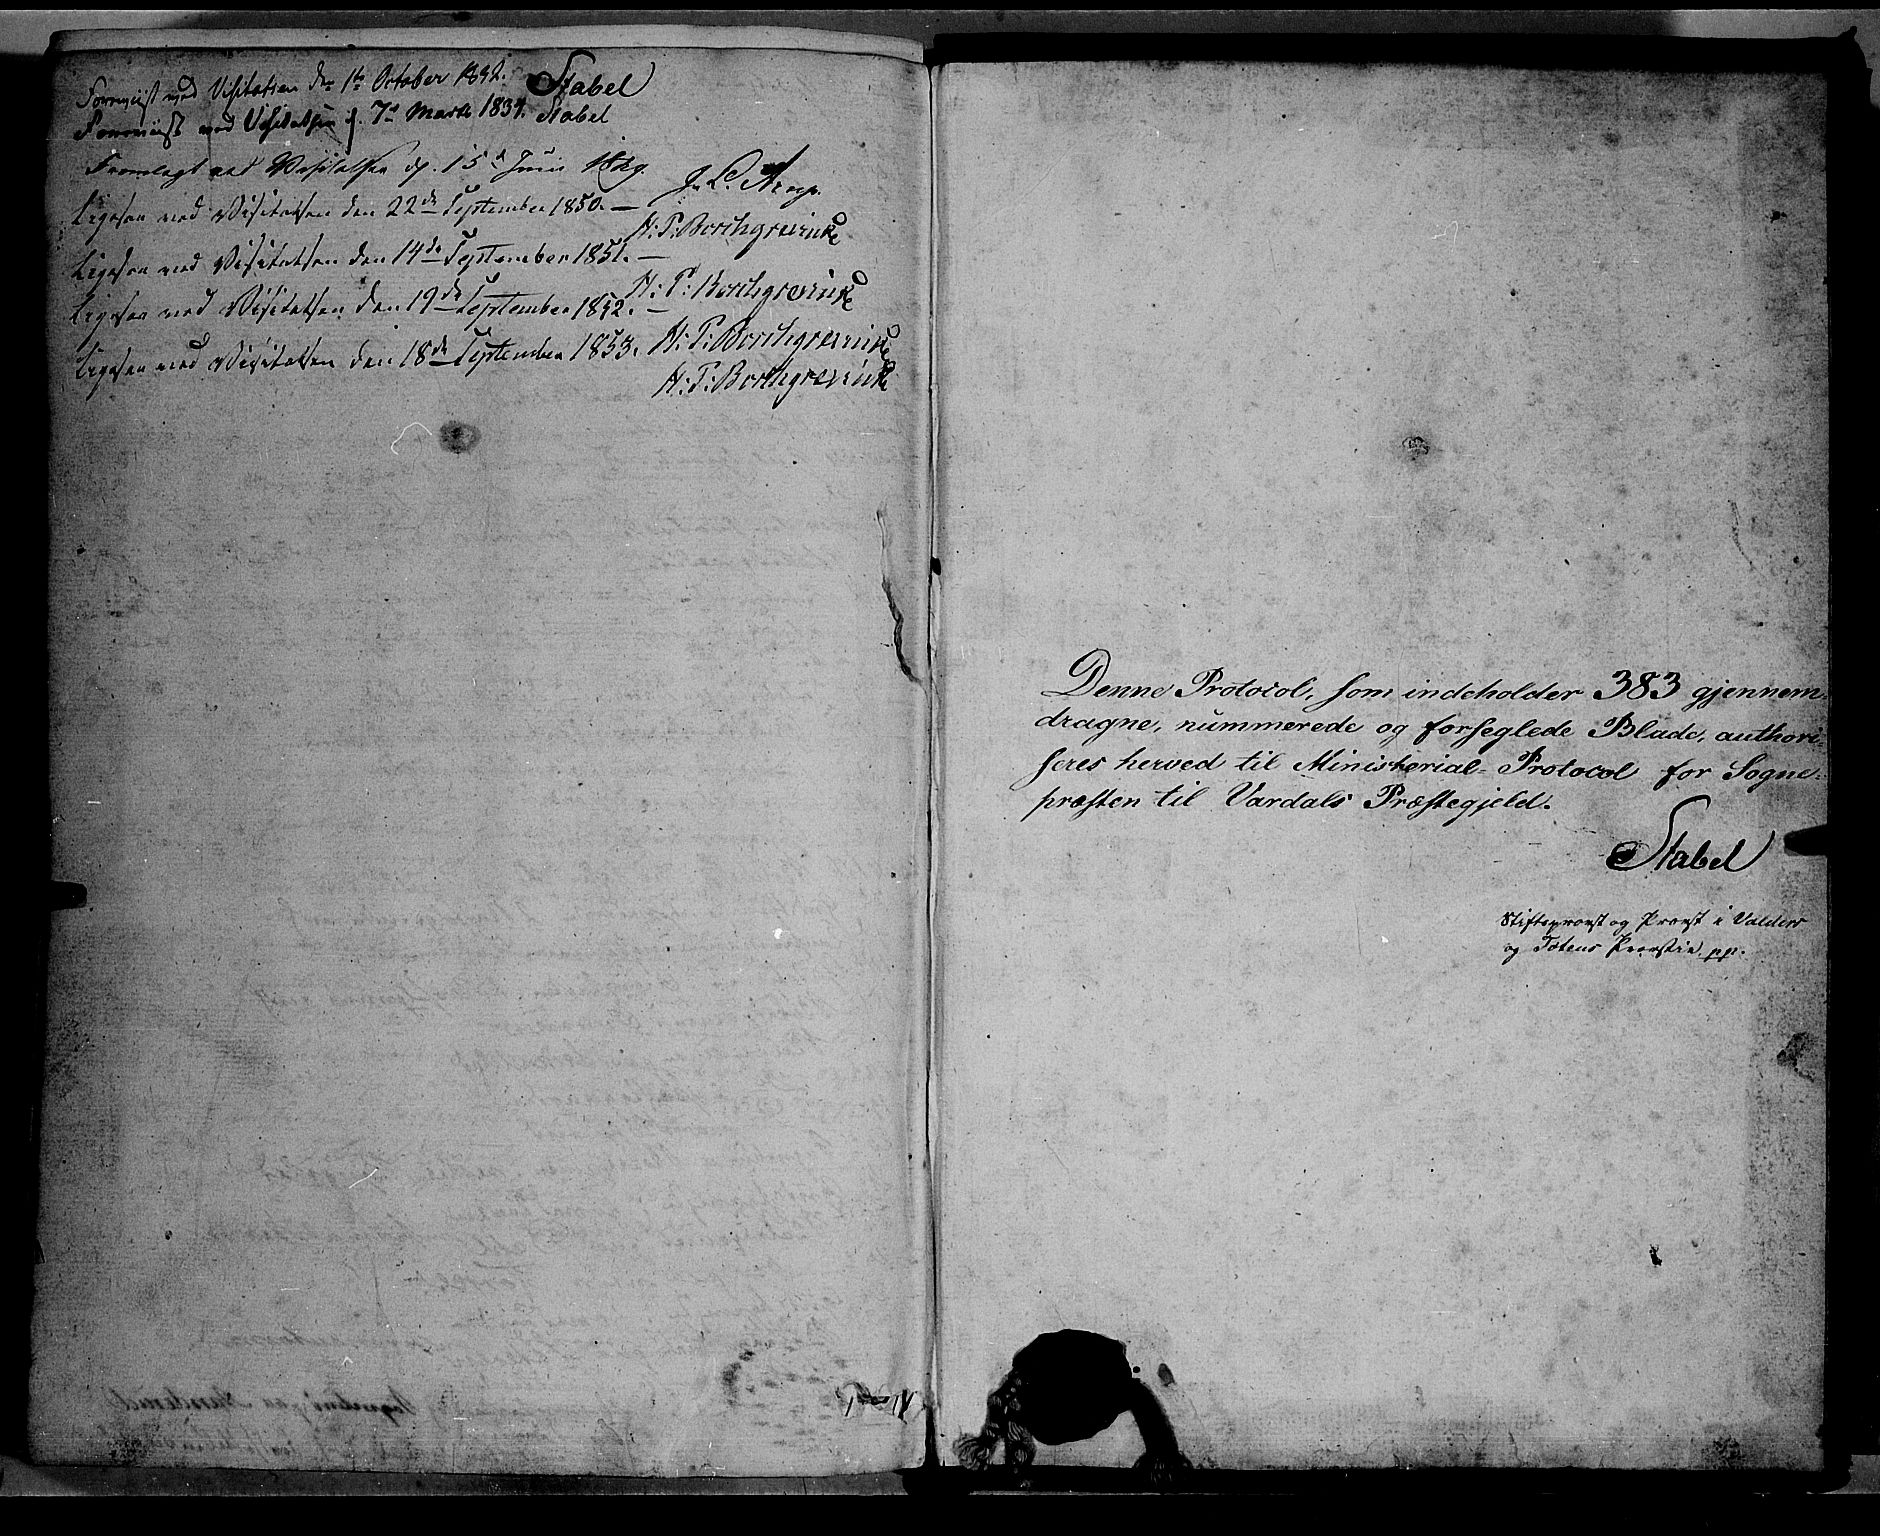 Foreviist ved Visitatsen den 1ste October 1842. Stabel
Foreviist ved Visitatsen d. 7de Marts 1837. Stabel
Fremlagt ved Visitatsen d. 15de Juni J. L. Arup.
Ligesaa ved Visitatsen den 22de September 1850. —
H: P: Borchgrevink
Ligesaa ved Visitatsen den 14de September 1851. —
H: P: Borchgrevink
Ligesaa ved Visitatsen den 19de September 1852. —
H: P: Borchgrevink
Ligesaa ved Visitatsen den 18de September 1853.
H: P: Borchgrevink
Denne Protocol, som indeholder 383 gjennem-
dragne, nummerede og forseglede Blade, authori-
seres herved til Ministerial-Protocol for Sogne-
præsten til Vardals Præstegjeld.
Stabel
Stiftsprovst og Provst i Valders
og Totens Provstie pp.